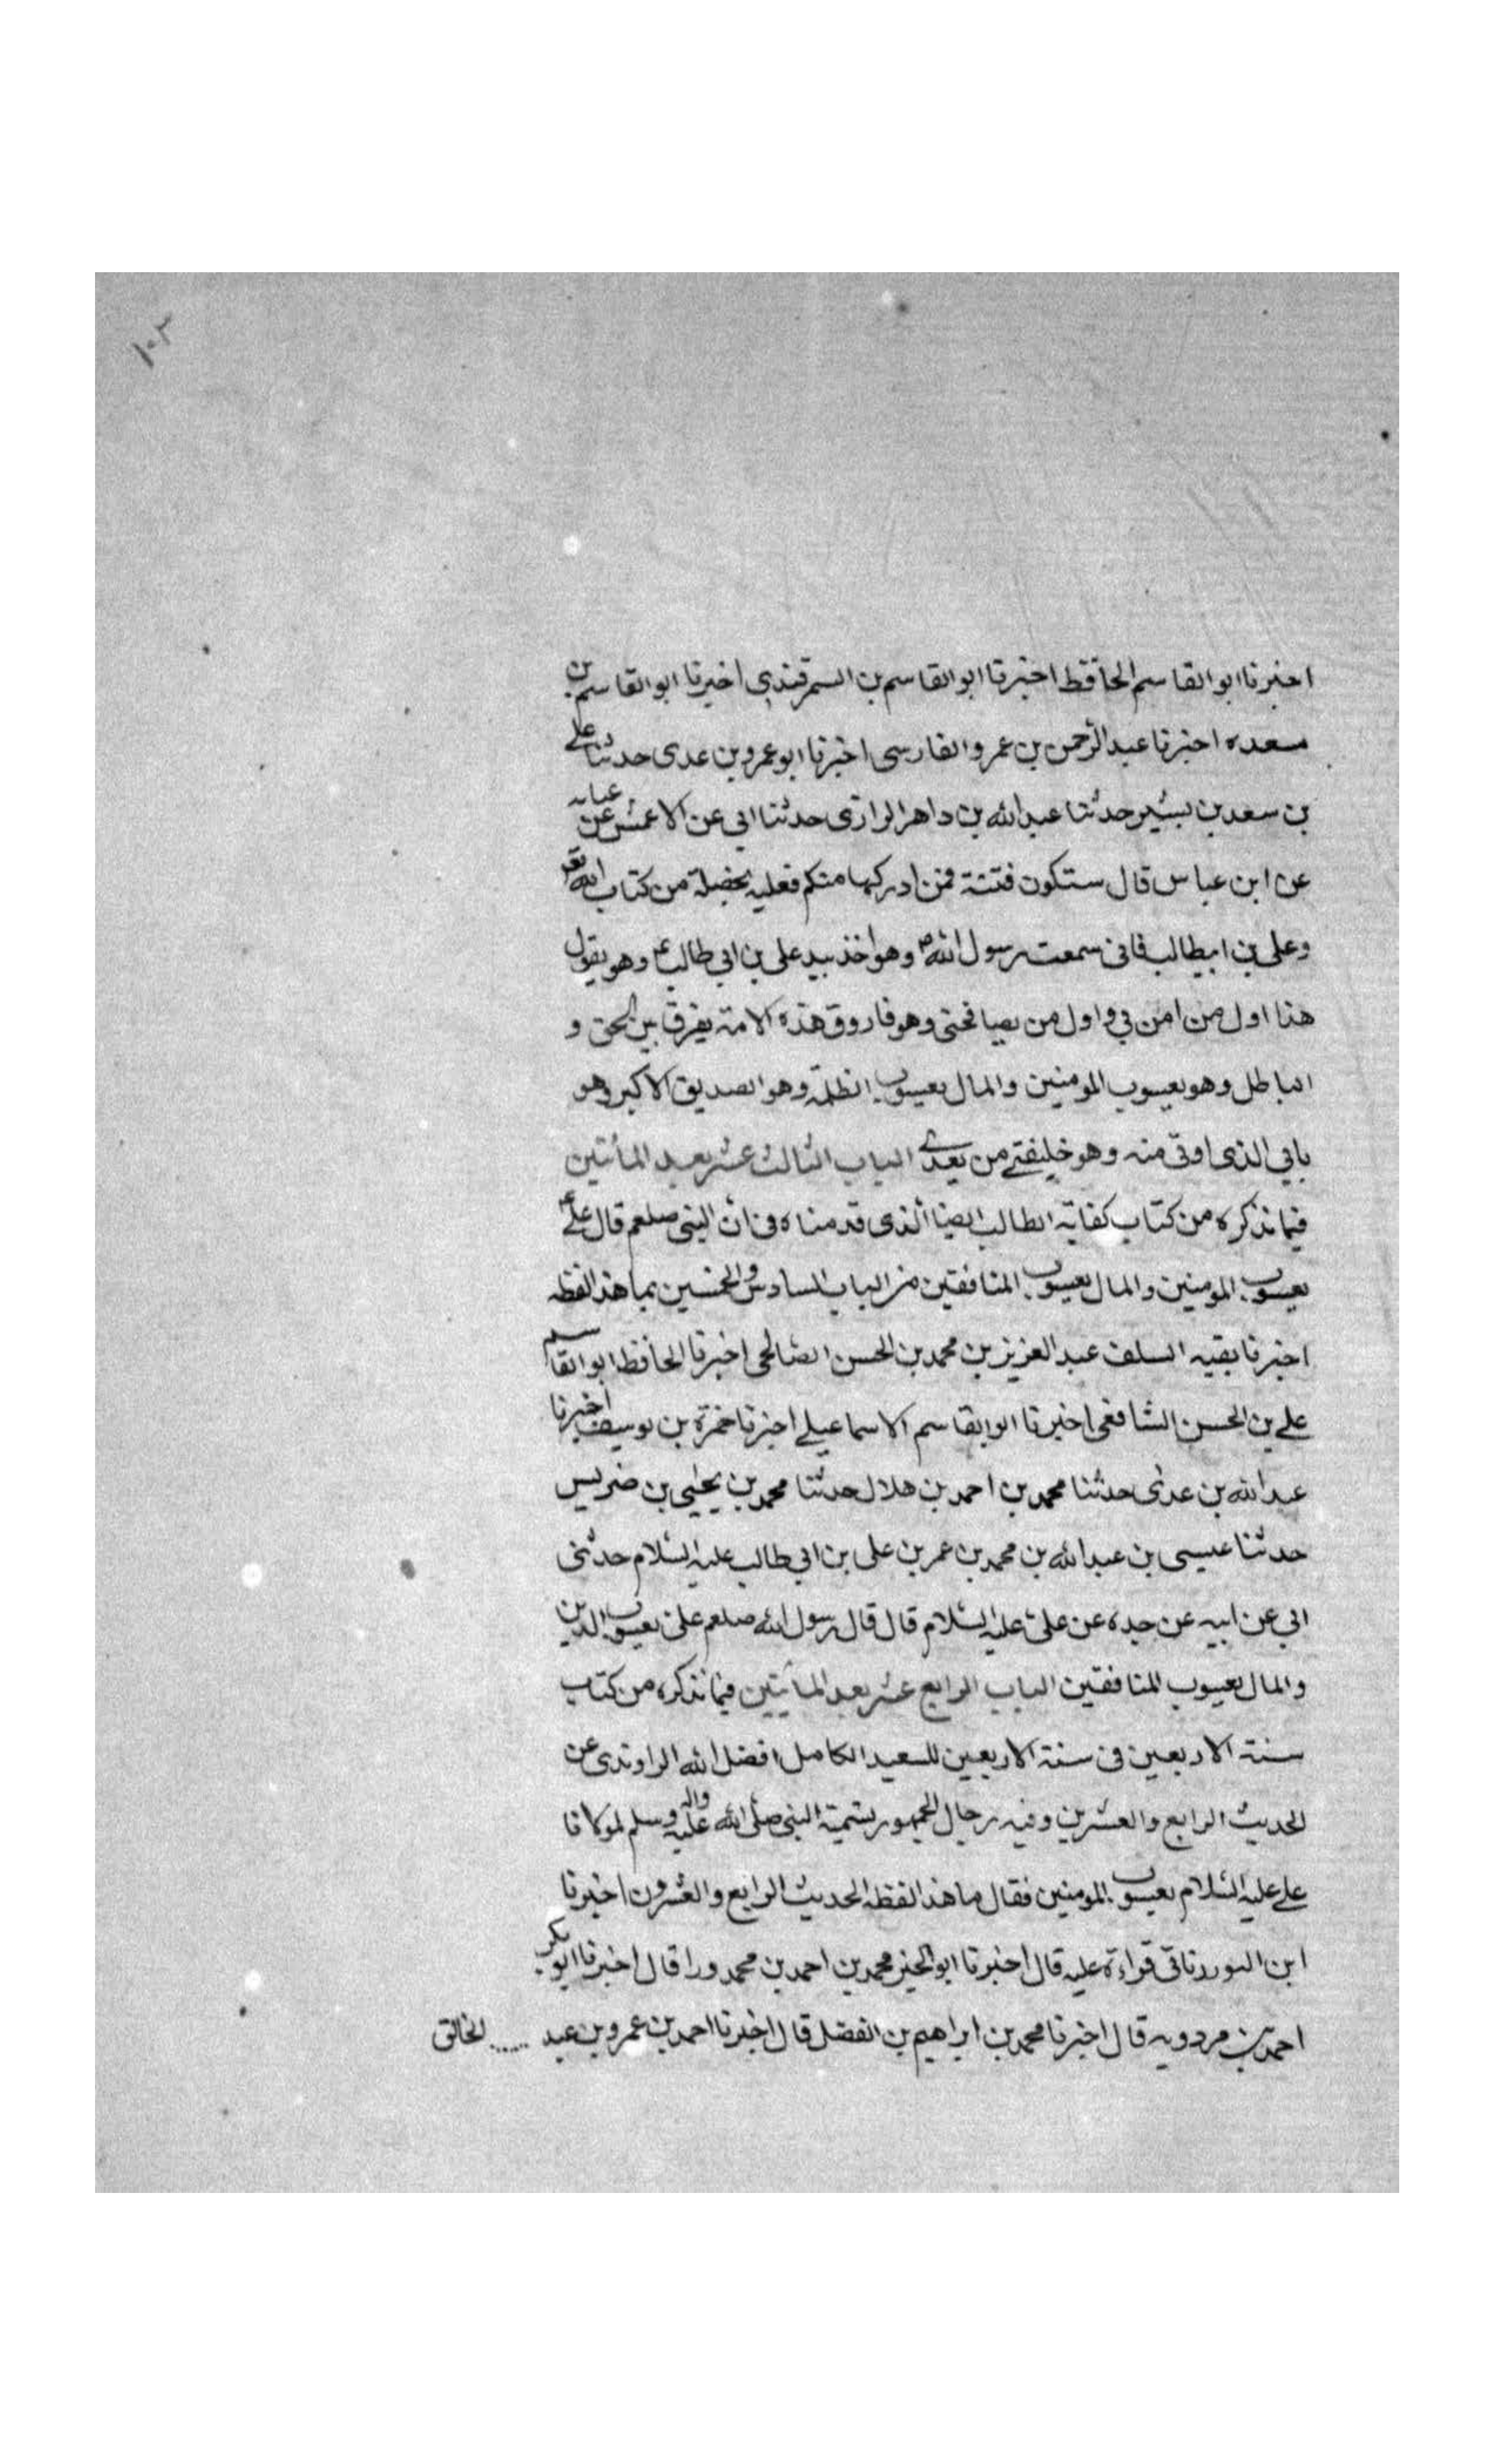 ١٠٢
اخبرنا ابو القاسم الحافظ اخبرنا ابو القاسم بن السمرقندى اخبرنا ابو القاسم بن
مسعده اخبرنا عبد الرحمن بن عمرو الفارسى اخبرنا ابو عمرو بن عدى حدثنا على
بن سعد بن بشير حدثنا عبد الله بن داهر الرازى حدثنا ابى عن الاعمش عن عبايه
عن ابن عباس قال ستكون فتنة فمن ادركها منكم فعليه بخصلة من كتاب الله تع
وعلى بن ابيطالب فانى سمعت رسول الله ص وهو اخذ بيد على بن ابى طالب ع وهو يقول
هذا اول من امن بى واول من يصافحنى وهو فاروق هذه الامة يفرق بين الحق و
الباطل وهو يعسوب المومنين والمال يعسوب الظلمة وهو الصديق الاكبر وهو
بابى الذى اوتى منه وهو خليفتى من بعدى الباب الثالث عشر بعد المأتين
فيما نذكره من كتاب كفاية الطالب ايضا الذى قدمناه فى ان النبى صلعم قال على ع
يعسوب المومنين والمال يعسوب المنافقين من الباب السادس والخمسين بما هذا لفظه
اخبرنا بقيه السلف عبد العزيز بن محمد بن الحسن الصالحى اخبرنا الحافظ ابو القاسم
على بن الحسن الشافعى اخبرنا ابو القاسم الاسماعيلى اخبرنا حمزة بن يوسف اخبرنا
عبد الله بن عدى حدثنا محمد بن احمد بن هلال حدثنا محمد بن يحيى بن ضريس
حدثنا عيسى بن عبد الله بن محمد بن عمر بن على بن ابى طالب عليه السلام حدثنى
ابى عن ابيه عن جده عن على عليه السلام قال قال رسول الله صلعم على يعسوب الدين
والمال يعسوب المنافقين الباب الرابع عشر بعد المأيتين فيما نذكره من كتاب
سنة الاربعين فى سنة الاربعين للسعيد الكامل افضل الله الراوندى عن
الحديث الرابع والعشرين وفيه رجال الجمهور بتسمية النبى صلى الله عليه واله وسلم لمولانا
على عليه السلام يعسوب المومنين فقال ما هذا لفظه الحديث الرابع والعشرون اخبرنا
ابن قراءة عليه قال اخبرنا ابو الخير محمد بن احمد بن محمد ورا قال اخبرنا ابو بكر
احمد بن مردويه قال اخبرنا محمد بن ابراهيم بن الفضل قال اخبرنا احمد بن عمرو بن عبد ..... الخالق